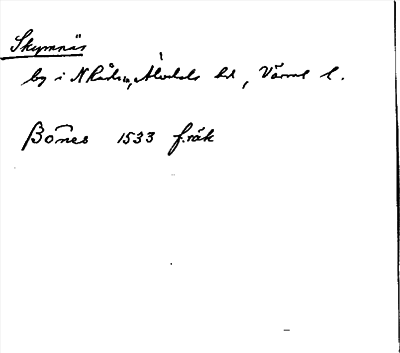 Skymnäs
by i N Råda sn, Älvdals hd, Värml l.
Bönes 1533 f.räk